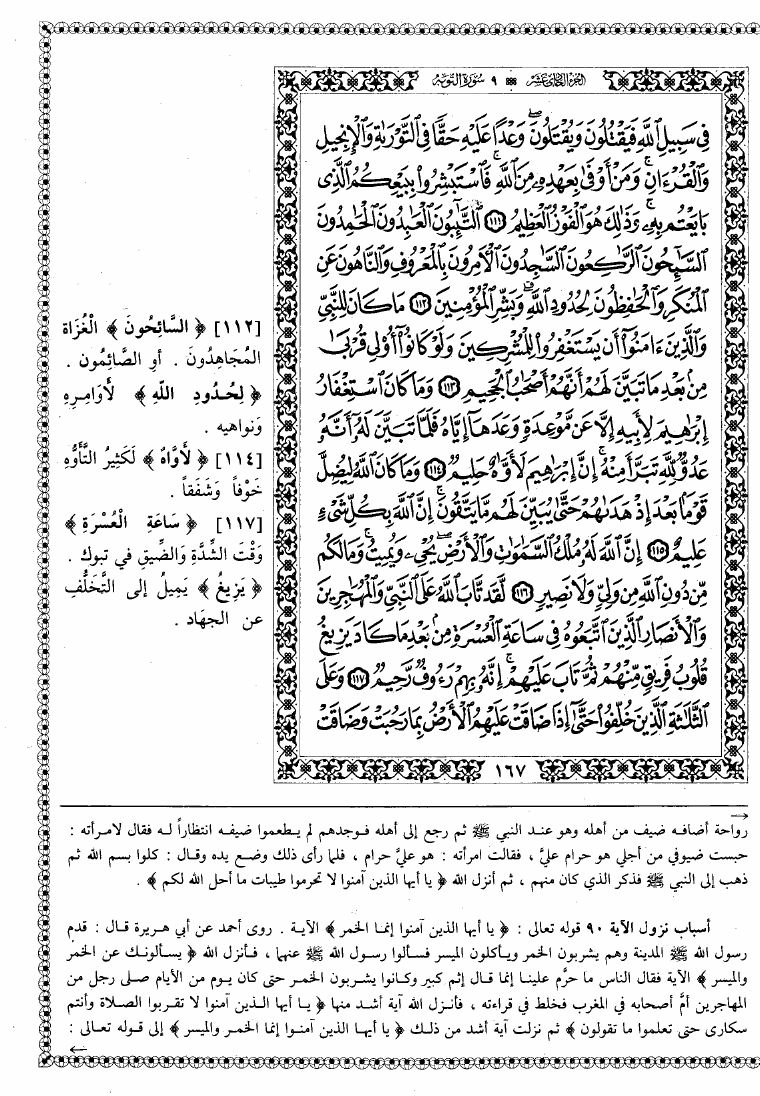 الجزء الحادي عشر ٩ سورة التوبة
فِى سَبِيلِ ٱللَّهِ فَيَقْتُلُونَ وَيُقْتَلُونَ ۖ وَعْدًا عَلَيْهِ حَقًّا فِى ٱلتَّوْرَىٰةِ وَٱلْإِنجِيلِ
وَٱلْقُرْءَانِ ۚ وَمَنْ أَوْفَىٰ بِعَهْدِهِۦ مِنَ ٱللَّهِ ۚ فَٱسْتَبْشِرُوا۟ بِبَيْعِكُمُ ٱلَّذِى
بَايَعْتُم بِهِۦ ۚ وَذَٰلِكَ هُوَ ٱلْفَوْزُ ٱلْعَظِيمُ ﴿١١١﴾ ٱلتَّٰٓئِبُونَ ٱلْعَٰبِدُونَ ٱلْحَٰمِدُونَ
ٱلسَّٰٓئِحُونَ ٱلرَّٰكِعُونَ ٱلسَّٰجِدُونَ ٱلْءَامِرُونَ بِٱلْمَعْرُوفِ وَٱلنَّاهُونَ عَنِ
ٱلْمُنكَرِ وَٱلْحَٰفِظُونَ لِحُدُودِ ٱللَّهِ ۗ وَبَشِّرِ ٱلْمُؤْمِنِينَ ﴿١١٢﴾ مَا كَانَ لِلنَّبِىِّ
وَٱلَّذِينَ ءَامَنُوٓا۟ أَن يَسْتَغْفِرُوا۟ لِلْمُشْرِكِينَ وَلَوْ كَانُوٓا۟ أُو۟لِى قُرْبَىٰ
مِنۢ بَعْدِ مَا تَبَيَّنَ لَهُمْ أَنَّهُمْ أَصْحَٰبُ ٱلْجَحِيمِ ﴿١١٣﴾ وَمَا كَانَ ٱسْتِغْفَارُ
إِبْرَٰهِيمَ لِأَبِيهِ إِلَّا عَن مَّوْعِدَةٍ وَعَدَهَآ إِيَّاهُ فَلَمَّا تَبَيَّنَ لَهُۥٓ أَنَّهُۥ
عَدُوٌّ لِّلَّهِ تَبَرَّأَ مِنْهُ ۚ إِنَّ إِبْرَٰهِيمَ لَأَوَّٰهٌ حَلِيمٌ ﴿١١٤﴾ وَمَا كَانَ ٱللَّهُ لِيُضِلَّ
قَوْمًۢا بَعْدَ إِذْ هَدَىٰهُمْ حَتَّىٰ يُبَيِّنَ لَهُم مَّا يَتَّقُونَ ۚ إِنَّ ٱللَّهَ بِكُلِّ شَىْءٍ
عَلِيمٌ ﴿١١٥﴾ إِنَّ ٱللَّهَ لَهُۥ مُلْكُ ٱلسَّمَٰوَٰتِ وَٱلْأَرْضِ ۖ يُحْىِۦ وَيُمِيتُ ۚ وَمَا لَكُم
مِّن دُونِ ٱللَّهِ مِن وَلِىٍّ وَلَا نَصِيرٍ ﴿١١٦﴾ لَّقَد تَّابَ ٱللَّهُ عَلَى ٱلنَّبِىِّ وَٱلْمُهَٰجِرِينَ
وَٱلْأَنصَارِ ٱلَّذِينَ ٱتَّبَعُوهُ فِى سَاعَةِ ٱلْعُسْرَةِ مِنۢ بَعْدِ مَا كَادَ يَزِيغُ
قُلُوبُ فَرِيقٍ مِّنْهُمْ ثُمَّ تَابَ عَلَيْهِمْ ۚ إِنَّهُۥ بِهِمْ رَءُوفٌ رَّحِيمٌ ﴿١١٧﴾ وَعَلَى
ٱلثَّلَٰثَةِ ٱلَّذِينَ خُلِّفُوا۟ حَتَّىٰٓ إِذَا ضَاقَتْ عَلَيْهِمُ ٱلْأَرْضُ بِمَا رَحُبَتْ وَضَاقَتْ
١٦٧
[١١٢] ﴿ السَّائِحُونَ ﴾ الْغُزَاة
المُجَاهِدُونَ . أو الصَّائِمُون .
﴿ لِحُدُودِ اللّهِ ﴾ لأَوَامِرِهِ
وَنواهيه .
[١١٤] ﴿ لأَوَّاهٌ ﴾ لَكَثِيرُ التَّأَوُّهِ
خَوْفاً وَشَفَقاً .
[١١٧] ﴿ سَاعَةِ الْعُسْرَةِ ﴾
وَقْتَ الشِّدَّةِ وَالضِّيقِ في تبوك .
﴿ يَزِيغُ ﴾ يَمِيلُ إلى التَّخَلُّفِ
عن الجهَاد .
رواحة أضافه ضيف من أهله وهو عند النبي ﷺ ثم رجع إلى أهله فوجدهم لم يطعموا ضيفه انتظاراً له فقال لامرأته :
حبست ضيوفي من أجلي هو حرام عليَّ ، فقالت امرأته : هو عليَّ حرام ، فلما رأى ذلك وضع يده وقال : كلوا بسم الله ثم
ذهب إلى النبي ﷺ فذكر الذي كان منهم ، ثم أنزل الله ﴿ يا أيها الذين آمنوا لا تحرموا طيبات ما أحل الله لكم ﴾ .
أسباب نزول الآية ٩٠ قوله تعالى : ﴿ يا أيها الذين آمنوا إنما الخمر ﴾ الآية . روى أحمد عن أبي هريرة قال : قدم
رسول الله ﷺ المدينة وهم يشربون الخمر ويأكلون الميسر فسألوا رسول الله ﷺ عنهما ، فأنزل الله ﴿ يسألونك عن الخمر
والميسر ﴾ الآية فقال الناس ما حرَّم علينا إنما قال إثم كبير وكانوا يشربون الخمر حتى كان يوم من الأيام صلى رجل من
المهاجرين أمَّ أصحابه في المغرب فخلط في قراءته ، فأنزل الله آية أشد منها ﴿ يا أيها الذين آمنوا لا تقربوا الصلاة وأنتم
سكارى حتى تعلموا ما تقولون ﴾ ثم نزلت آية أشد من ذلك ﴿ يا أيها الذين آمنوا إنما الخمر والميسر ﴾ إلى قوله تعالى :